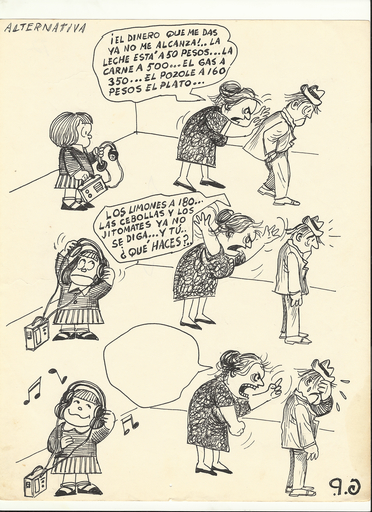 ALTERNATIVA
¡EL DINERO QUE ME DAS
YA NO ME ALCANZA!..LA
LECHE ESTA' A 50 PESOS...LA
CARNE A 500...EL GAS A
350...EL POZOLE A 160
PESOS EL PLATO...
LOS LIMONES A 180...
LAS CEBOLLAS Y LOS
JITOMATES YA NO
SE DIGA...Y TÚ..
¿QUÉ HACES?..
G.P.